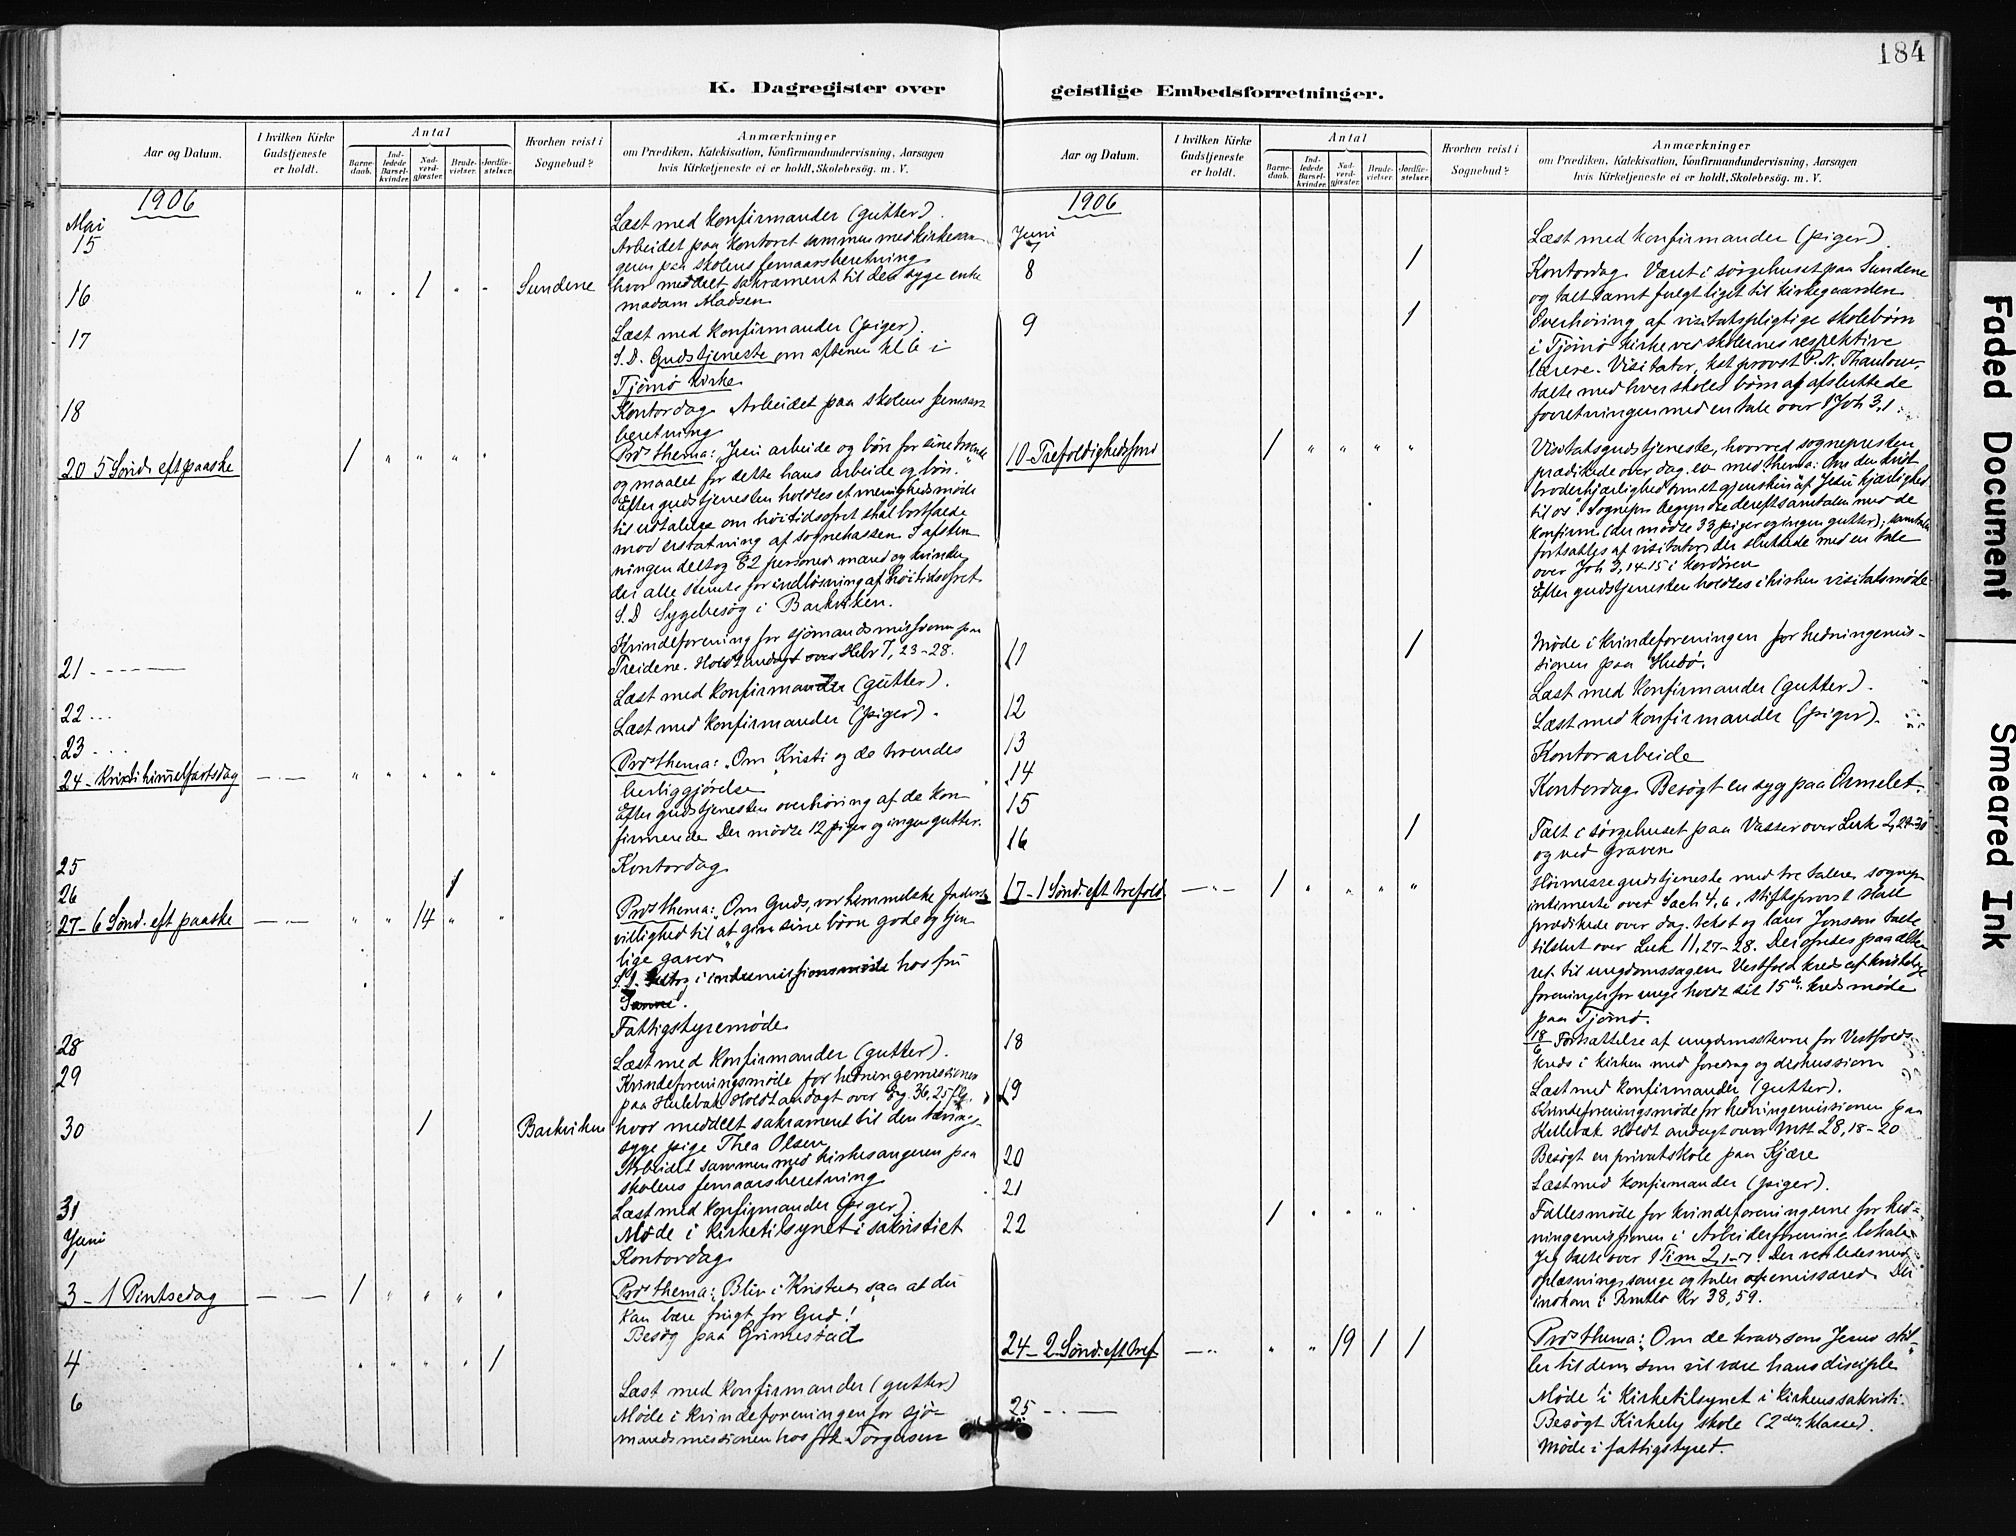 184
K. Dagregister over geistlige Embedsforretninger.
Aar og Datum.
I hvilken Kirke Gudstjeneste er holdt.
Antal
Barnedaab.
Indledede Barselkvinder.
Nadverdgjæster.
Brudevielser.
Jordfæstelser.
Hvorhen reist i Sognebud?
Anmærkninger
om Prædiken, Katekisation, Konfirmandundervisning, Aarsagen
hvis Kirketjeneste ei er holdt, Skolebesög. m. V.
1906
Mai
15
Læst med konfirmander (gutter).
Arbeidet paa kontoret sammen med kirkesan-
geren paa skolens femaarsberetning
16 " " 1 " " Sundene
hvor meddelt sakrament til den syge enke
madam Madsen
17
Læst med konfirmander (piger).
S.D. Gudstjeneste om aftenen kl 6 i
Tjømø kirke
18
Kontordag. Arbeidet paa skolens femaars
beretning
20 5 Sönd. eft paaske 1 " " " "
Præs thema: "Jesu arbeide og bön for sine troende
og maalet for dette hans arbeide og bön."
Efter gudstjenesten holdtes et menighedsmøde
til udtalelse om höitidsofret skal bortfalde
mod erstatning af sognekassen. I afstem
ningen deltog 82 personer mænd og kvinder
der alle stemte for indløsning af höitidsofret
S.D Sygebesög i Barkviken.
21
Kvindeforening for sjömandsmissionen paa
Treidene. Holdt andagt over Hebr 7, 23-28.
22
Læst med konfirmander (gutter).
23
Læst med konfirmander (piger).
24 - Kristi himmelfartsdag — " — " " " " "
Præs thema: "Om Kristi og de troendes
herliggjörelse"
Efter gudstjenesten overhöring af de kon-
firmerede Der mödte 12 piger og ingen gutter.
25
Kontordag
26 1
27 - 6 Sönd. eft paaske — " — " " 14 " "
Præs thema: "Om Guds, vor himmelske faders
villighed til at give sine börn gode og tjen-
lige gaver"
S.D. Deltog i indremissionsmöte hos fru
28
Fattigstyremøde
29
Læst med konfirmander (gutter).
Kvindeforeningsmøde for hedningemissionen
paa Hulebak Holdt andagt over
30 1 Barkviken
hvor meddelt sakrament til den tærings-
syge pige Thea Olsen
Arbeidet sammen med kirkesangeren paa
skolens femaarsberetning
31
Læst med konfirmander (piger)
Møde i kirketilsynet i sakristiet
Juni
1
Kontordag
3 - 1 Pintsedag — " — 1 " " " "
Præs thema: "Bliv i Kristus saa at du
kan bære frugt for Gud!"
Besög paa Grimestad
4 " " " " 1
6
Læst med konfirmander (gutter)
Møde i kvindeforeningen for sjö-
mandsmissionen hos frk Torgersen
Aar og Datum.
I hvilken Kirke Gudstjeneste er holdt.
Antal
Barnedaab.
Indledede Barselkvinder.
Nadverdgjæster.
Brudevielser.
Jordfæstelser.
Hvorhen reist i Sognebud?
Anmærkninger
om Prædiken, Katekisation, Konfirmandundervisning, Aarsagen
hvis Kirketjeneste ei er holdt, Skolebesög. m. V.
1906
Juni
7
Læst med konfirmander (piger)
8 1
Kontordag. Været i sørgehuset paa Sundene
og talt samt fulgt liget til kirkegaarden
9 1
Overhöring af visitatspligtige skolebörn
i Tjömö kirke ved skolernes respektive
lærere. Visitator, hst provst P. N. Thaulow,
talte med hver skoles börn og afsluttede
forretningen med en tale over 1 Joh 3,1.
10 - Trefoldighedssönd 1 " " " "
Visitatsgudstjeneste, hvorved sognepresten
prædikede over dag. ev. med thema: Om den krist
broderkjærlighed som et gjenskin af Jesu kjærlighed
til os. Sognepr. begyndte dereft samtalen med de
konfirm. (der mødte 33 piger og ingen gutter); samtalen
fortsattes af visitator, der sluttede med en tale
over Joh 3,14-15 i kordören
Efter gudstjenesten holdtes i kirken visitatsmøde
11 1
Møde i kvindeforeningen for hedningemis-
sionen paa Hvasser.
12
Læst med konfirmander (gutter).
13
Læst med konfirmander (piger).
14
Kontorarbeide
15
Kontordag. Besögt en syg paa Ormelet.
16 1
Talt i sørgehuset paa Vasser over Luk 2, 29-30
og ved graven
17 - 1 Sönd. eft trefold. — " — 1 " " " "
Höimessegudstjeneste med tre talere, sognepr.
intimerte over Sach 4,6, stiftsprovst Hall
prædikede over dag. tekst og lærer Jonsson talte
tilslut over Luk 11, 27-28. Der ofredes paa alte-
ret til ungdomssagen. Vestfold kreds af kristelige
foreninger for unge holdt sit 15de kredsmøde
paa Tjömö.
18
18/6 Fortsættelse af ungdomsstevne for Vestfolds
kreds i kirken med foredrag og diskussion
19
Læst med konfirmander (gutter).
Kvindeforeningsmøde for hedningemissionen paa
Hulebak Holdt andagt over Mtt 28, 18-20
20
Besögt en privatskole paa Kjære
21
Læst med konfirmander (piger).
22 1 " " " "
Fællesmøde for kvindeforeningerne for hed-
ningemissionen i Arbeiderforening. lokale
Jeg talte over 1 Tim 2,1-7. Der vexledes med
oplæsning, sange og taler af emissærer. Der
indkom i Bruttó Kr 38,59.
24 - 2 Sönd. eft tref. — " — " " 19 1 1
Præs thema: Om de krav som Jesus stil-
ler til dem som vil være hans disciple"
25
Møde i kirketilsynet i kirkens sakristi.
Besögt Kirkeby skole (2den klasse).
Møde i fattigstyret.
Faded Document
Smeared Ink